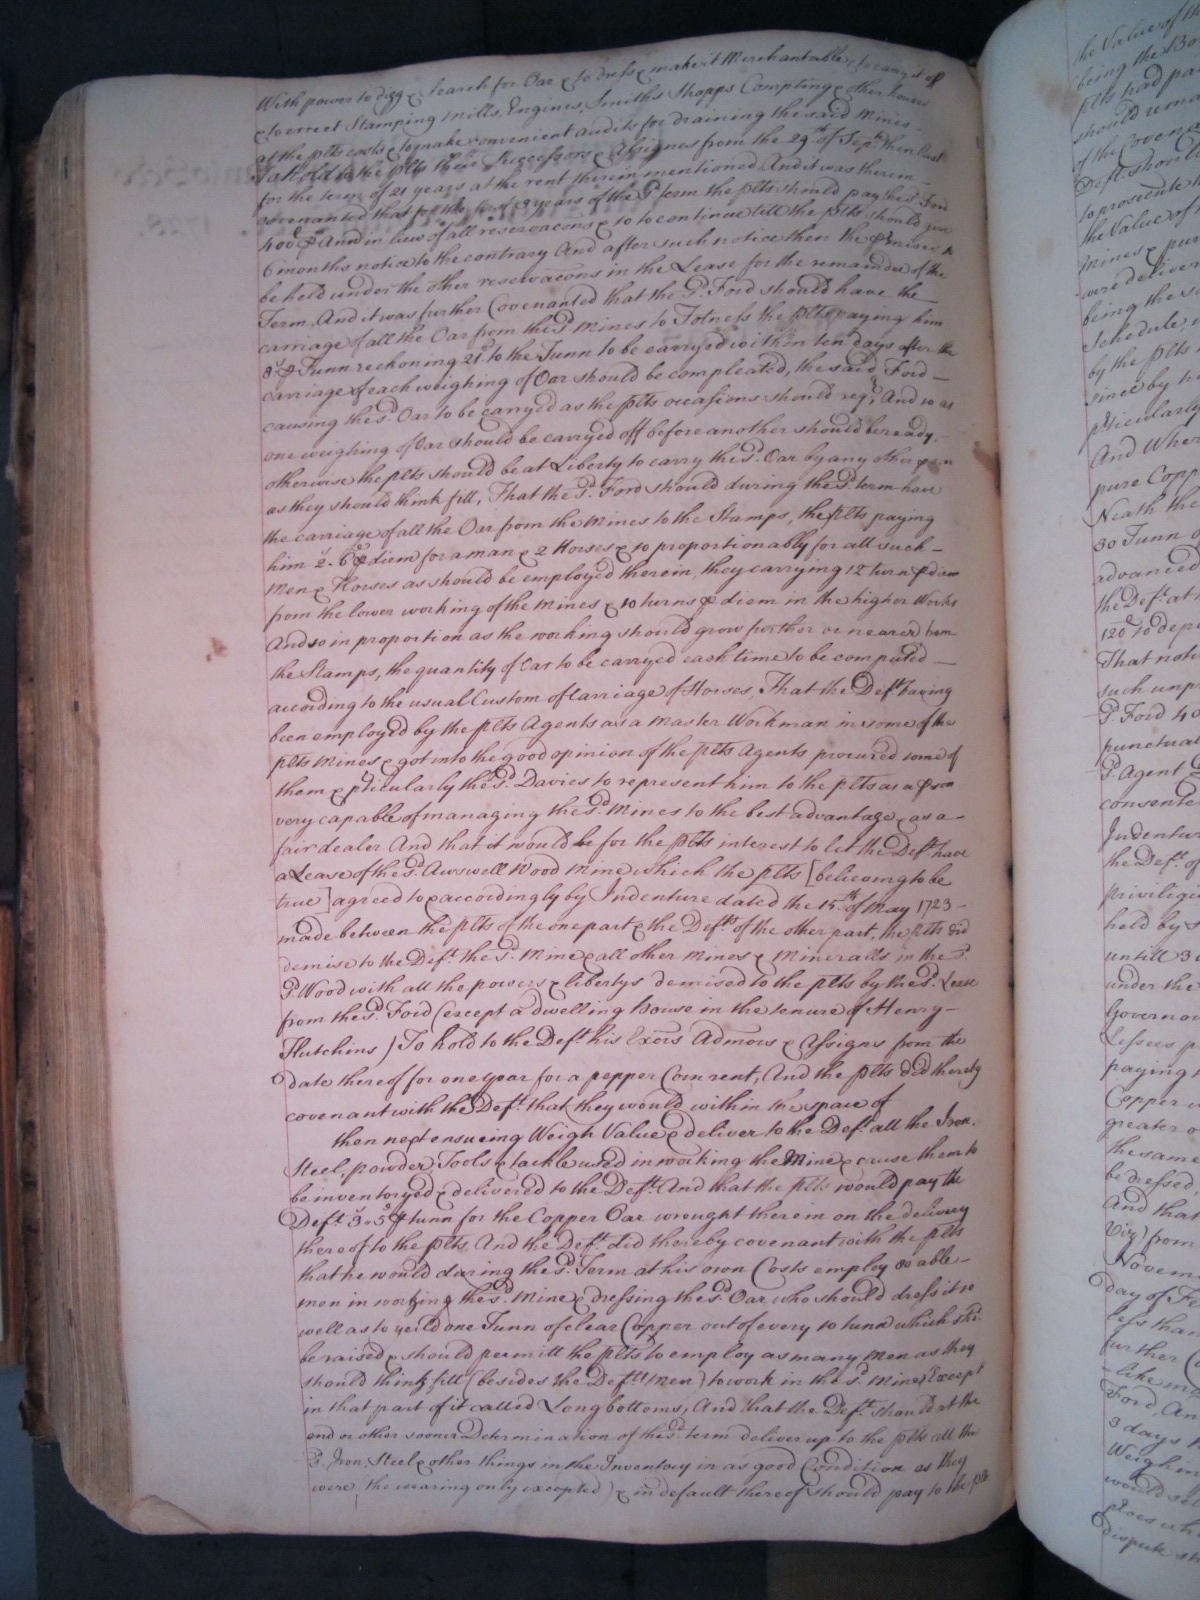 With power to digg & search for Oar & to dress & make it Merchantable & to carry it off
& to errect Stamping Mills, Engines, Smiths Shopps Compting & other houses
at the plts costs & to make convenient audits for draining the said Mines
To hold to the plts their Successors & Assignes from the 29th. of Septr. then last
for the term of 21 years at the rent therein mentioned And it was therein
covenanted that for the first 3 years of the sd. term the plts should pay the sd. Ford
400£ ℘ Ann in lieu of all reservacons & so to continue till the plts should give
6 months notice to the contrary And after such notice then the ℘mises to
be held under the other reservacons in the Lease for the remainder of the
Term, And it was further Covenanted that the sd. Ford should have the
carriage of all the Oar from the sd. Mines to Totness the plts paying him
8s ℘ Tunn reckoning 21C to the Tunn to be carryed within ten days after the
carriage of each weighing of Oar should be compleated, the said Ford
causing the sd. Oar to be carryed as the plts occasions should reqr. And so as
one weighing of Oar should be carryed off before another should be ready,
otherwise the plts should be at Liberty to carry the sd. Oar by any other ℘son
as they should think fitt, That the sd. Ford should during the sd. term have
the carriage of all the Oar from the Mines to the Stamps, the plts paying
him 2s. 6d ℘ diem for a man & 2 Horses & so proportionably for all such
Men & Horses as should be employed therein, they carrying 12 turns ℘ diem
from the lower working of the Mines & 10 turns ℘ diem in the higher Works
And so in proportion as the working should grow further or nearer from
the Stamps, the quantity of Oar to be carryed each time to be computed
according to the usual Custom of Carriage of Horses, That the Deft. having
been employed by the plts Agents as a Master Workman in some of the
plts Mines & got into the good opinion of the plts Agents procured some of
them & ℘ticularly the sd. Davies to represent him to the plts as a ℘son
very capable of managing the sd. Mines to the best advantage & as a
fair dealer And that it would be for the plts interest to let the Deft. have
a Lease of the sd. Awswell Wood Mine which the plts [believing to be
true] agreed to & accordingly by Indenture dated the 15th. of May 1723
made between the plts of the one part & the Deft. of the other part, the plts did
demise to the Deft. the sd. Mine & all other Mines & Mineralls in the sd.
sd. Wood with all the powers & libertys demised to the plts by the sd. Lease
from the sd. Ford (except a dwelling house in the tenure of Henry
Hutchins) To hold to the Deft. his Exors Admors & Assigns from the
date thereof for one year for a pepper Corn rent, And the plts did thereby
covenant with the Deft. that they would within the space of
then next ensueing Weigh Value & deliver to the Deft. all the Iron,
Steel, powder, Tools & tackle used in working the Mine & cause them to
be inventoryed & delivered to the Deft. And that the plts would pay the
Deft. 3£. 5s ℘ tunn for the Copper Oar wrought therein on the delivery
thereof to the plts, And the Deft. did thereby covenant with the plts
that he would during the sd. Term at his own Costs employ 30 able
men in working the sd. Mine & dressing the sd. Oar who should dress it so
well as to yeild one Tunn of clear Copper out of every 10 tunn which shd.
be raised & should permitt the plts to employ as many Men as they
should think fitt (besides the Defts. Men) to work in the sd. Mine, Except
in that part of it called Longbottoms, And that the Deft. should at the
end or other sooner Determination of the sd. term deliver up to the plts all the
sd. Iron, Steel & other things in the Inventory in as good Condition as they
were (the wearing only excepted) & in default thereof should pay to the plts
the Value of th
being the Bo
plts had pa
should rema
of the Covena
Deft. should
to prosecute t
the Value of
Mines & pur
were deliver
being the s
Schedule,
by the plts
since by h
℘ticularly
And Wher
pure Copp
Neath the
30 Tunn o
advanced
the Deft. at
120£ to dep
That not
such unp
sd. Ford 40
punctual
sd. Agent
consente
Indentur
the Deft. of
priviligi
held by
untill 3
under the
Governor
Lessees p
paying
Copper
greater o
the same
be dressed
And that
Viz) from
Novem
day of F
less than
further
like m
Ford, An
3 days
Weighin
would
does wh
dispute sh